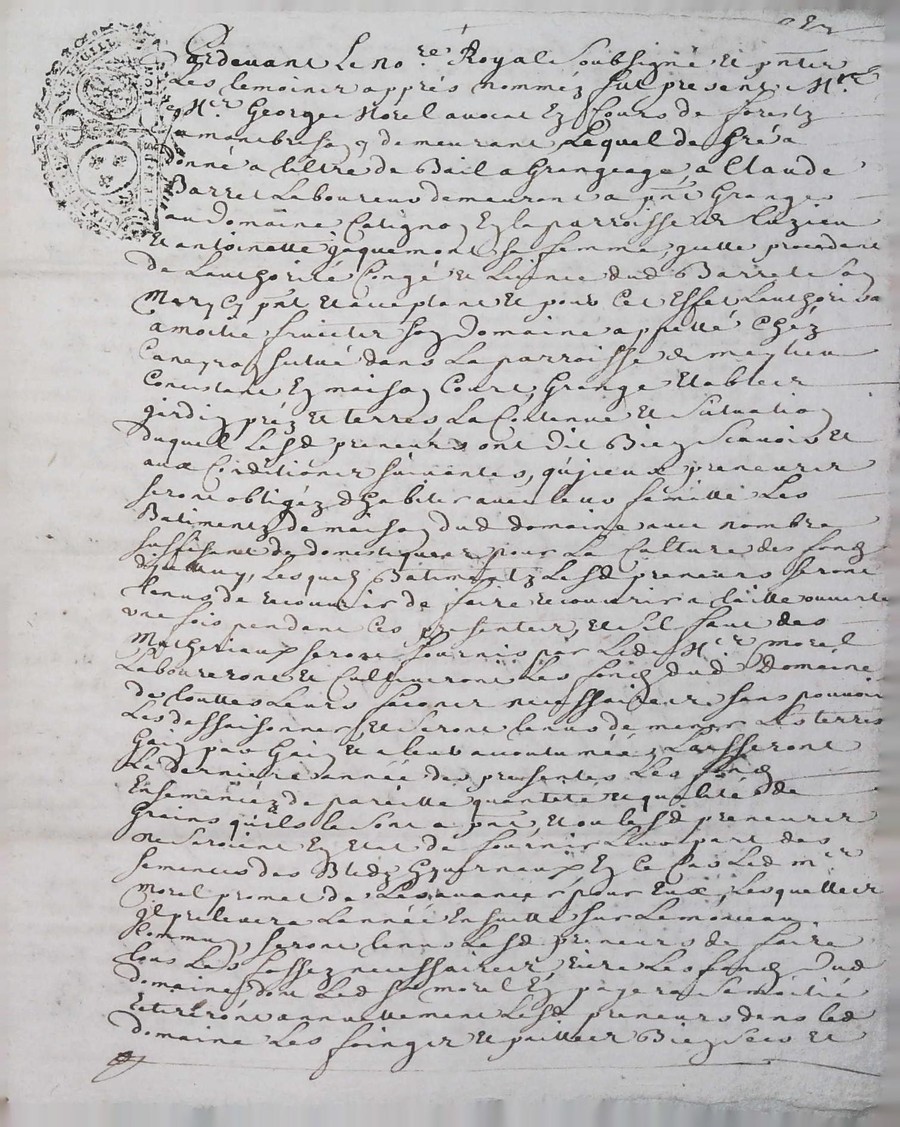 Pardevant Le No.re Royal Soubsigné Et pnts
Les temoins apprés nomméz fut present M.re
M.re George Morel avocat Ez Cours de forestz
a montbrison y demeurant Lequel de Gré a
donné a tiltre de Bail a Grangeage a Claude
Barret Laboureur demeurant a pnt Granger
au Domaine Catigno En la parroisse de Luzieu
Et antoinette Jaquemont sa femme, procedant
de Lauthorité Congé et Licence dud Barret Son
Mary Cy pnt Et acceptant Et pour Cet Effet Lauthorisa
a moitié fruictz son Domaine appellé Chéz
situé dans La parroisse de meylieu
Consistant En maison Court, Grange Etables
jardin préz Et terres, La Contenue Et Situation
duquel Lesd preneurs ont dit Bien Scavoir Et
aux Conditions suivantes, qu'jceux preneurs
seront obligéz d'habiter avec leur famille Les
Batimentz de maison dud domaine avec nombre
suffisant de domestiques pour La Culture des fondz
d'jceluy, Lesquelz Batimentz Lesd preneurs seront
tenus de recouvrir de faire recouvrir a taille ouverte
une fois pendant Ces presentes, Et s'il faut des
Matheriaux seront fournis par Led M.r morel
Laboureront Et Cultiveront Les fondz dud Domaine
de touttes Leurs façons necessaires sans pouvoir
Les dessaisonner, Et seront tenus de mener Les terres
Gain par Gain Et a leur accoutumée, Laisseront
La derniere année des presentes Les fondz
Ensemencéz de pareille quantité Et qualité de
Grains qu'ils le Sont a pnt, Et ou lesd preneurs
ne Seroient En Etat de fournir Leur part des
semences des Bledz hyvernaux En ce Cas Led m.r
Morel promet de Les avancer pour Eux, Lesquelles
jl prelevera Lannée Ensuitte sur Le monceau
Commun, seront tenus Lesd preneurs de faire
tous Les fossez necessaires Les fondz dud
domaine dont Led s.r morel En payera La moitié
Retireront annuellement Lesd preneurs dans led
domaine Les foings Et pailles Bien secs Et